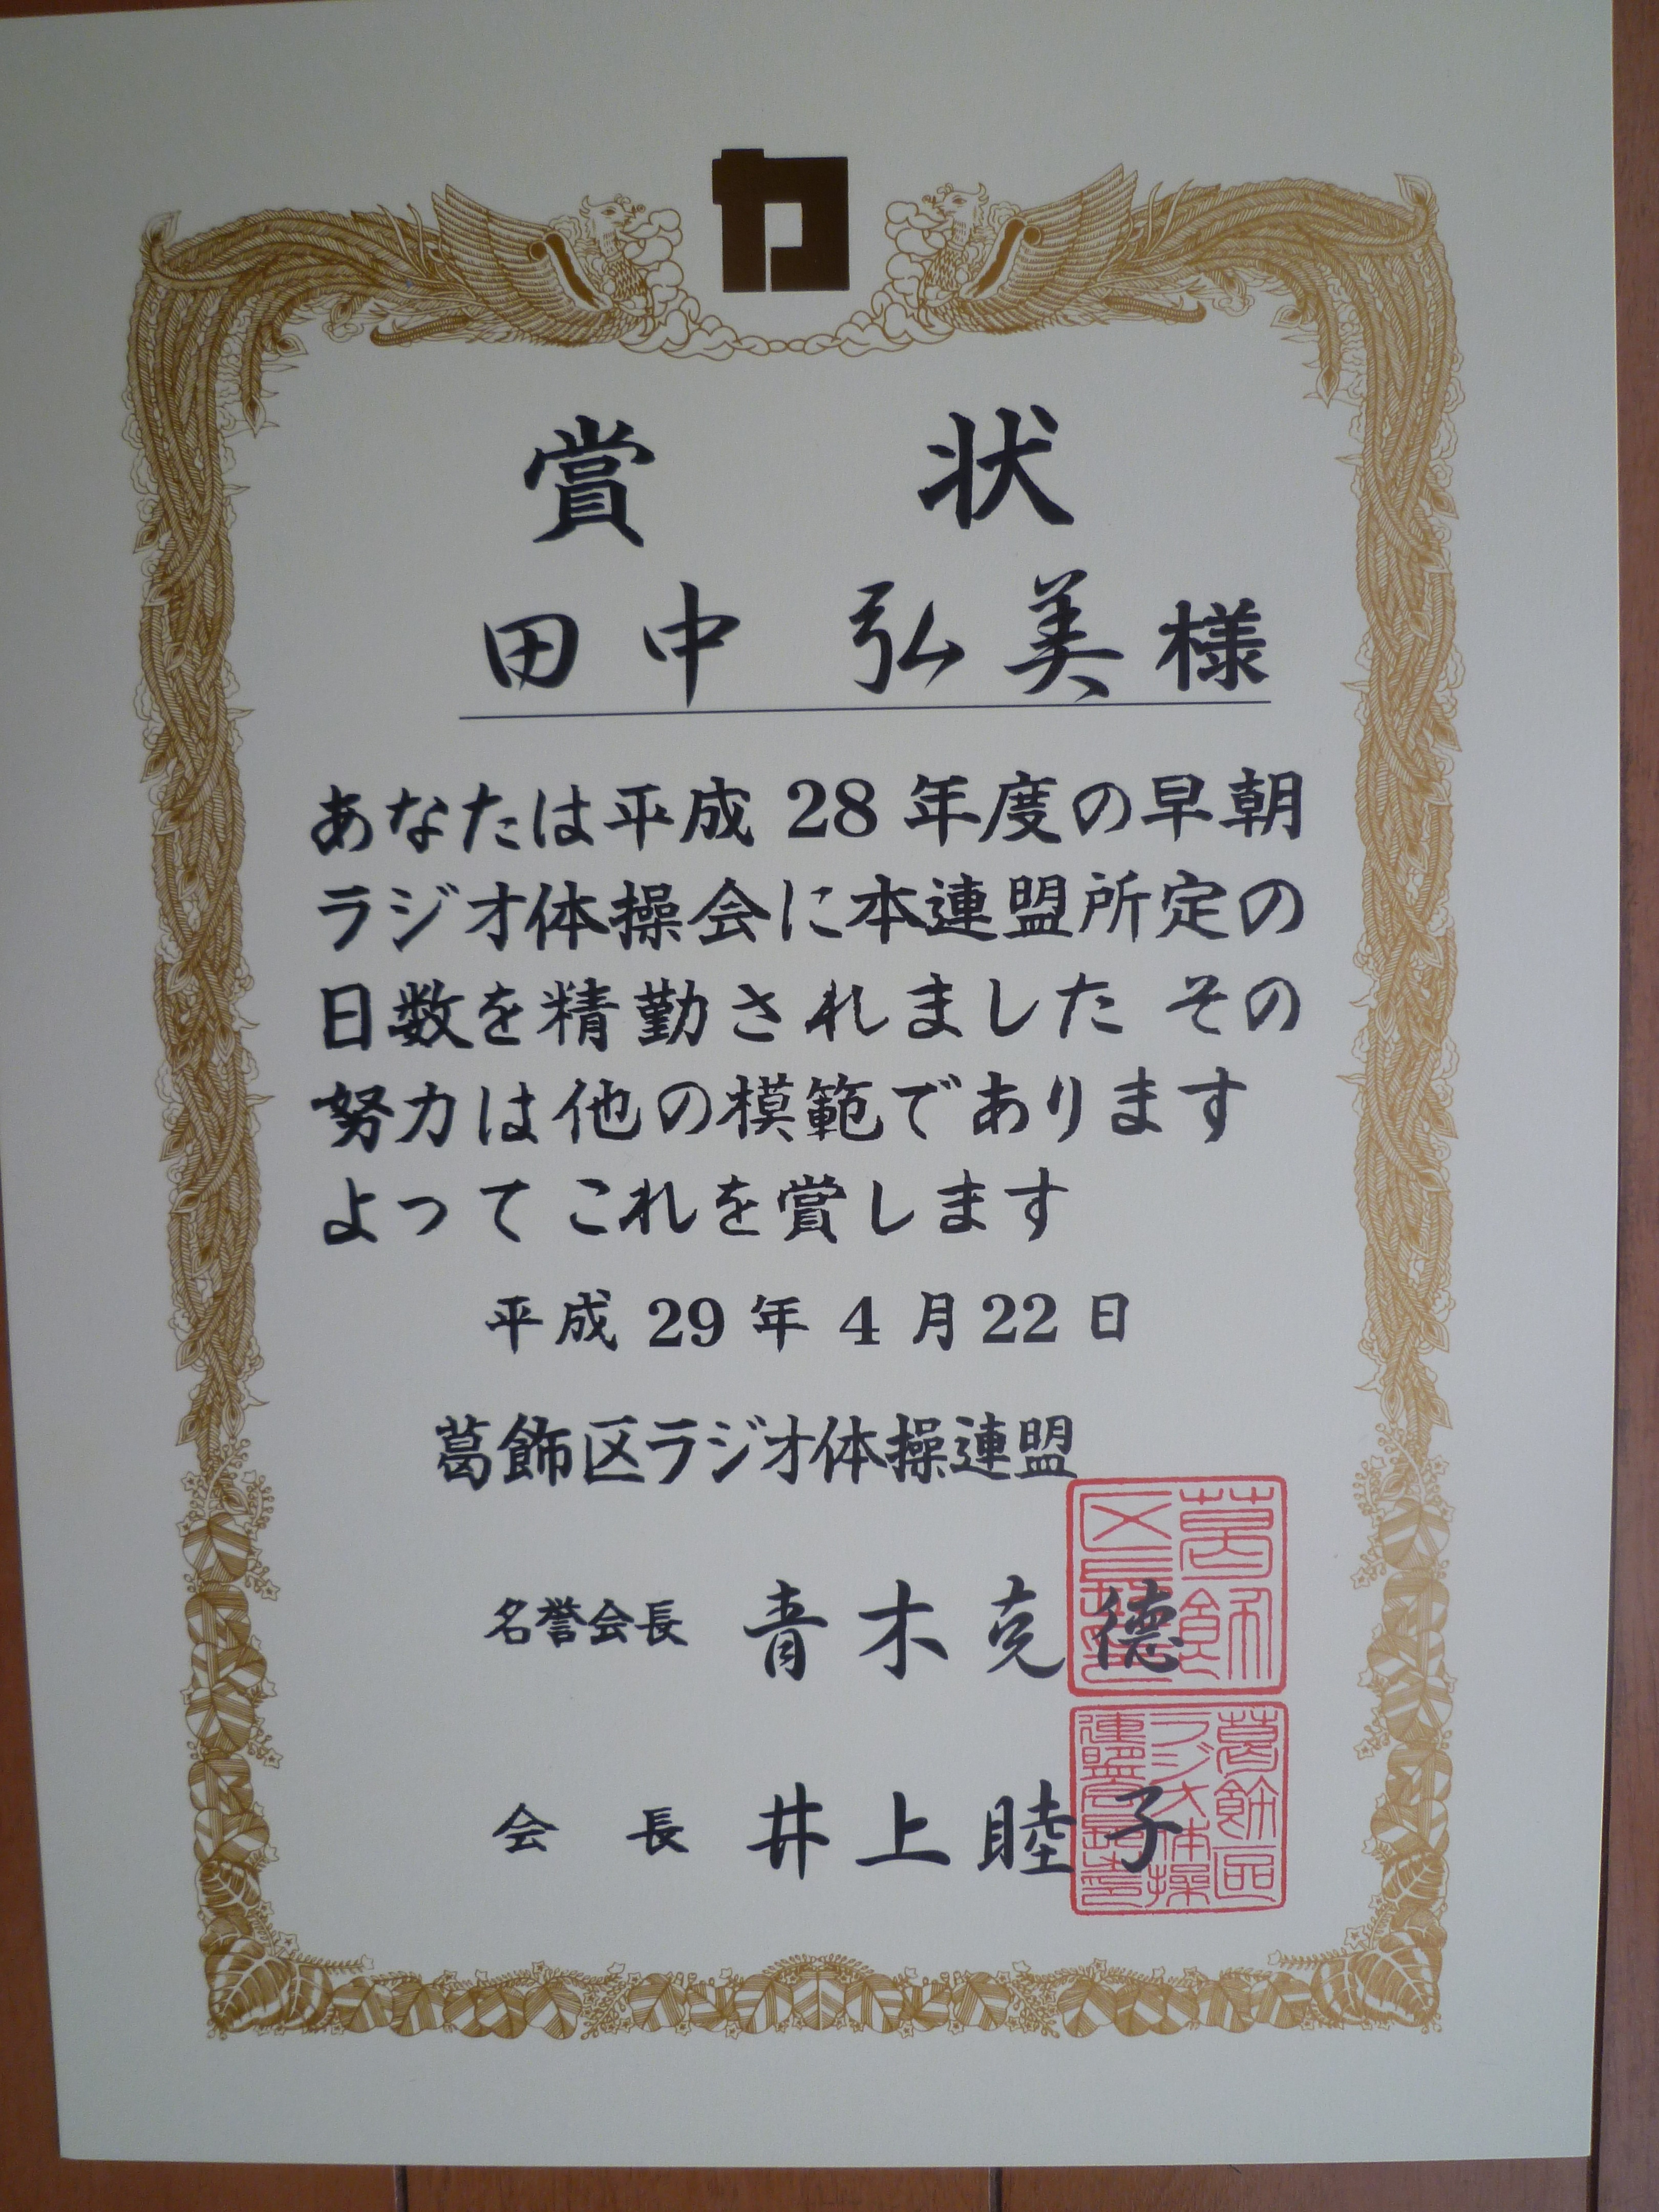 賞 状
田中 弘美 様
あなたは平成 28 年度の早朝
ラジオ体操会に本連盟所定の
日数を精勤されました その
努力は他の模範であります
よって これを賞します
平成 29 年 4 月 22 日
葛飾区ラジオ体操連盟
名誉会長 青木克德
会 長 井上睦子